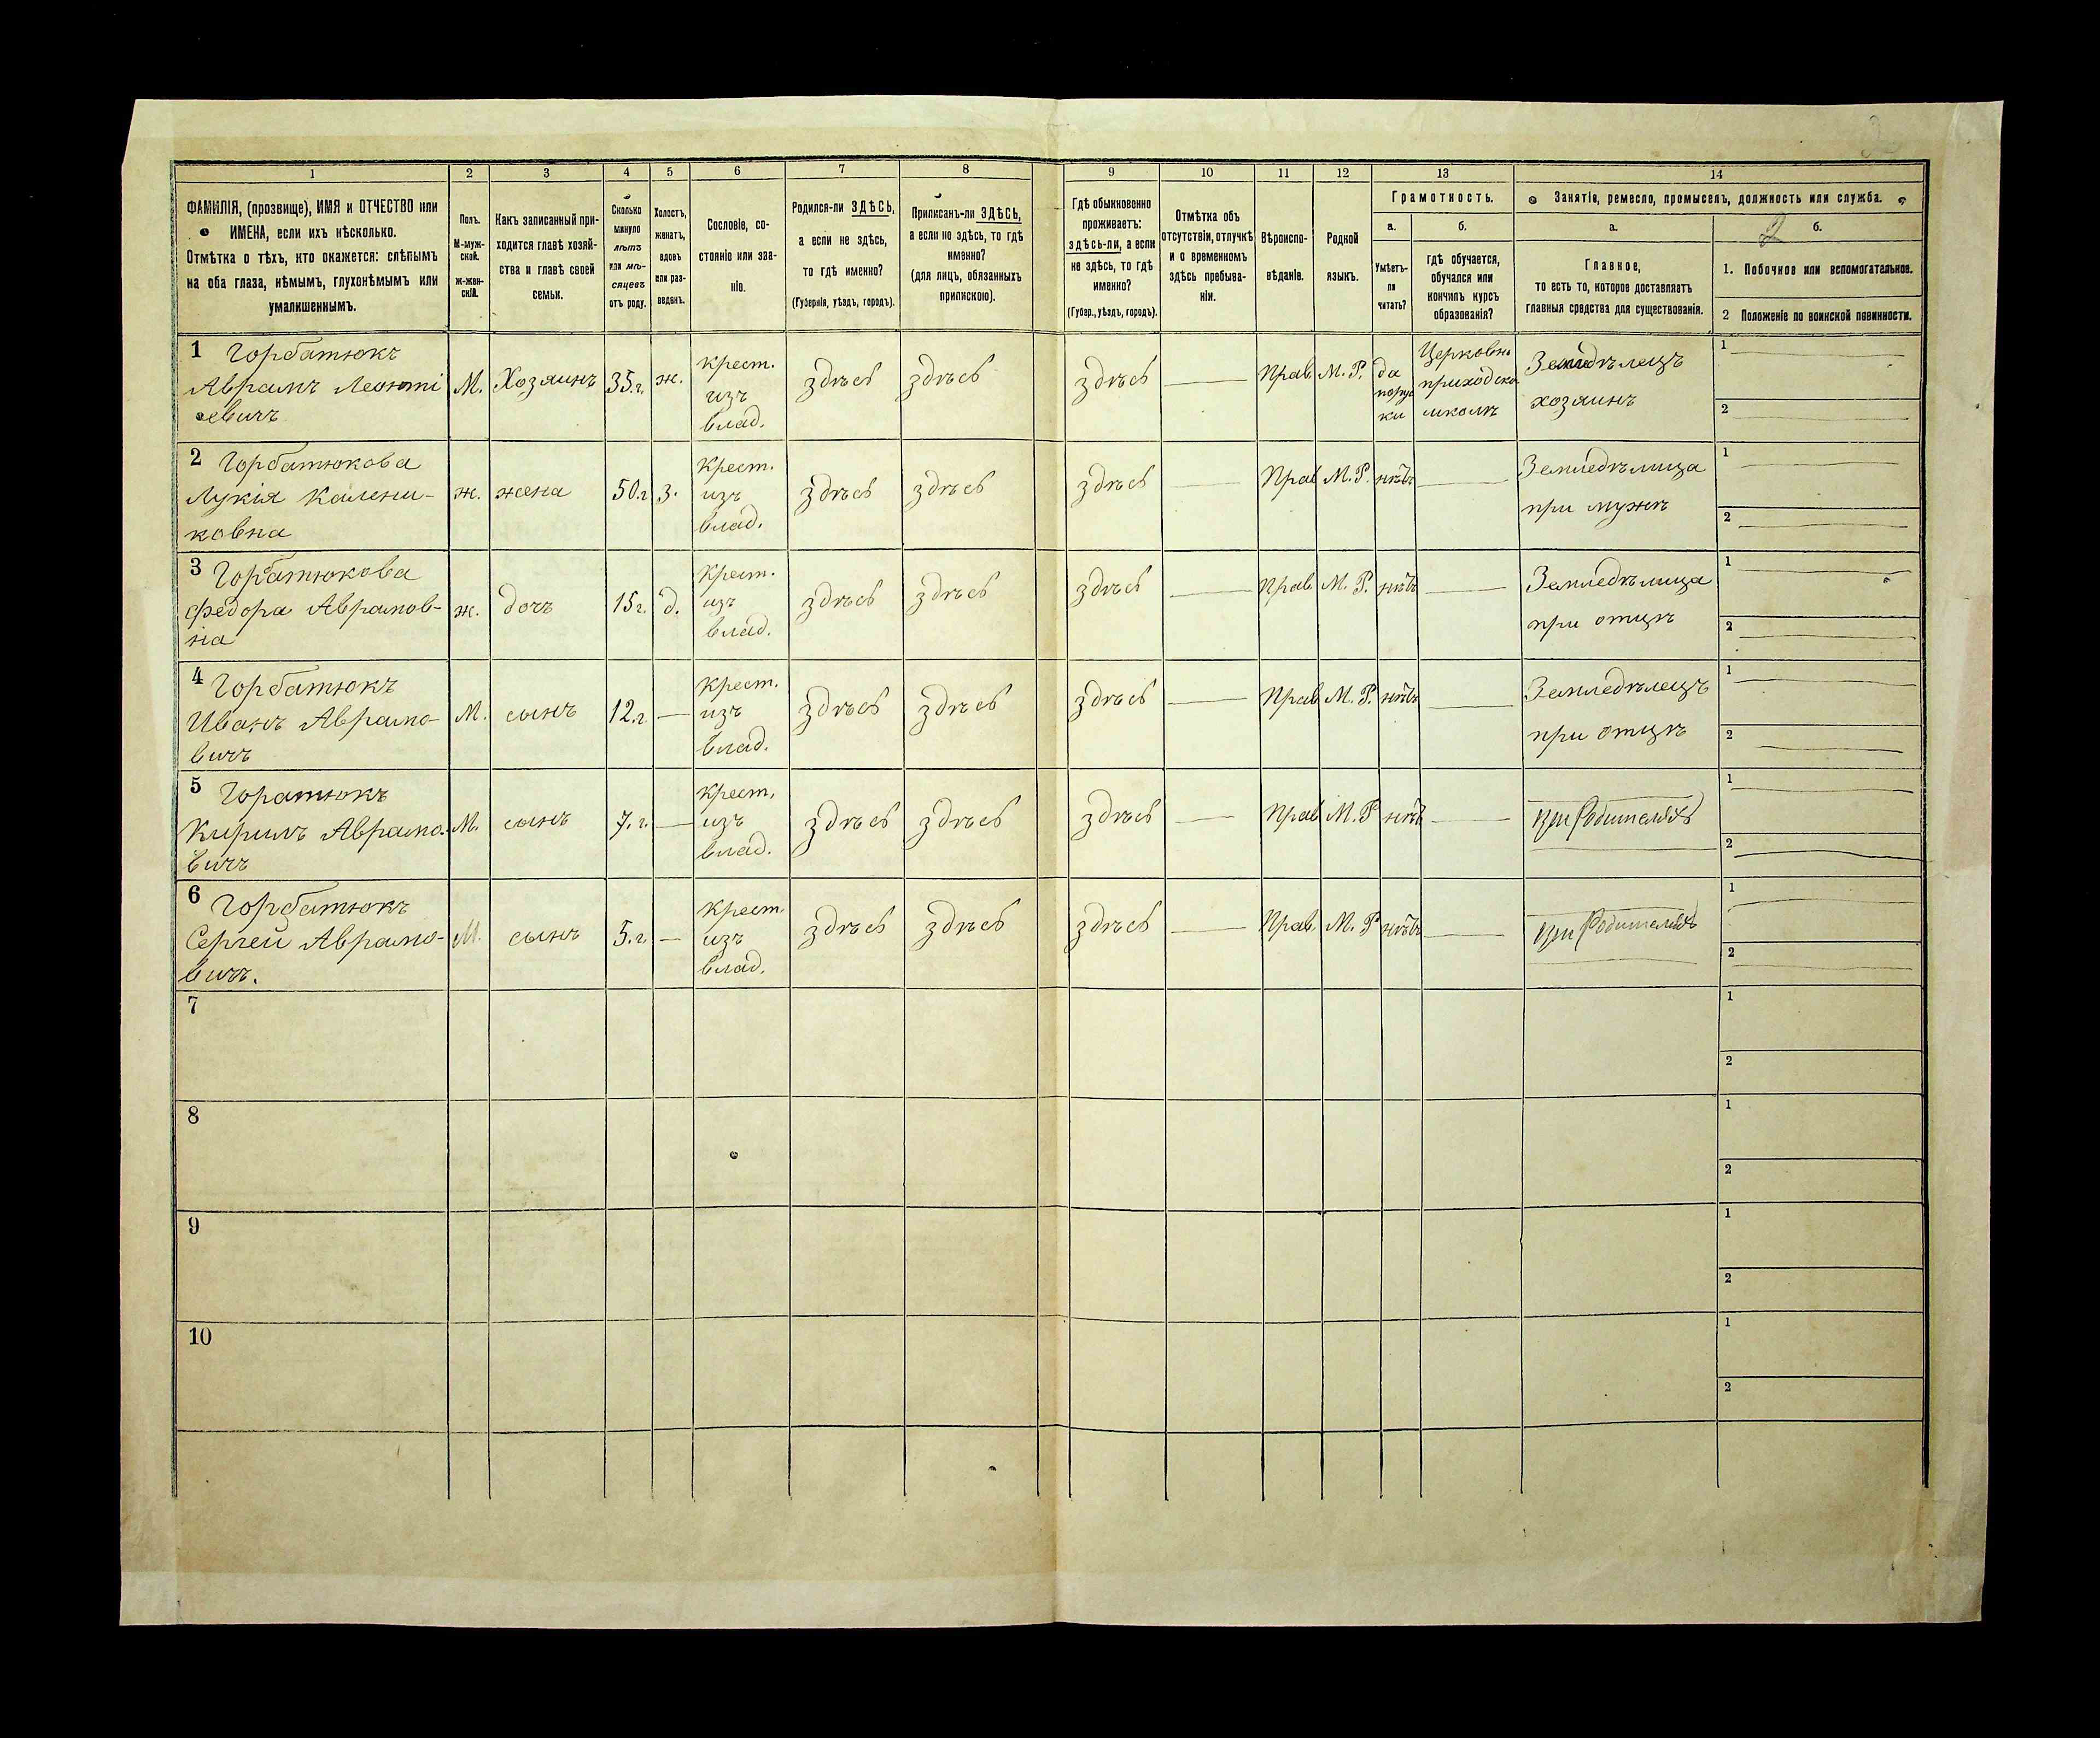 1 2 3 4 5 6 7 8 9 10 11 12 13 14
ФАМИЛІЯ, (прозвище), ИМЯ и ОТЧЕСТВО или
ИМЕНА, если ихъ нѣсколько.
Отмѣтка о тѣхъ, кто окажется: слѣпымъ
на оба глаза, нѣмымъ, глухонѣмымъ или
умалишеннымъ.
Полъ.
М-муж-
ской.
ж-жен-
скій.
Какъ записанный при-
ходится главѣ хозяй-
ства и главѣ своей
семьи.
Сколько
минуло
лѣтъ
или мѣ-
сяцевъ
отъ роду.
Холостъ,
женатъ,
вдовъ
или раз-
веденъ.
Сословіе, со-
стояніе или зва-
ніе.
Родился-ли ЗДѢСЬ,
а если не здѣсь,
то гдѣ именно?
(Губернія, уѣздъ, городъ).
Приписанъ-ли ЗДѢСЬ,
а если не здѣсь, то гдѣ
именно?
(для лицъ, обязанныхъ
припискою).
Гдѣ обыкновенно
проживаетъ:
здѣсь-ли, а если
не здѣсь, то гдѣ
именно?
(Губер., уѣздъ, городъ).
Отмѣтка объ
отсутствіи, отлучкѣ
и о временномъ
здѣсь пребыва-
ніи.
Вѣроиспо-
вѣданіе.
Родной
языкъ.
Грамотность.
а.
Умѣетъ-
ли
читать?
б.
гдѣ обучается,
обучался или
кончилъ курсъ
образованія?
Занятіе, ремесло, промыселъ, должность или служба.
а.
Главное,
то есть то, которое доставляетъ
главныя средства для существованія.
2
б.
1. Побочное или вспомогательное.
2 Положеніе по воинской повинности.
1 Горбатюкъ
Аврамъ Леонті
евичъ
М.
Хозяинъ
35 г.
ж.
крест.
изъ
влад.
здѣсь
здѣсь
здѣсь
Прав.
М. Р.
да
порус
ки
Церковно
приходско
школѣ
Земледѣлецъ
хозяинъ
1
2
2 Горбатюкова
Лукія Калени-
ковна
ж.
жена
50 г.
з.
крест.
изъ
влад.
здѣсь
здѣсь
здѣсь
Прав
М. Р.
нѣтъ
Земледѣлица
при мужѣ
1
2
3 Горбатюкова
Федора Аврамов-
на
ж.
дочь
15 г.
д.
крест.
изъ
влад.
здѣсь
здѣсь
здѣсь
Прав.
М. Р.
нѣтъ
Земледѣлица
при отцѣ
1
2
4 Горбатюкъ
Иванъ Аврамо-
вичъ
М.
сынъ
12. г.
крест.
изъ
влад.
здѣсь
здѣсь
здѣсь
Прав
М. Р.
нѣтъ
Земледѣлецъ
при отцѣ
1
2
5 Горатюкъ
Кирилъ Аврамо-
вичъ
М.
сынъ
7. г.
крест.
изъ
влад.
здѣсь
здѣсь
здѣсь
Прав
М. Р
нѣтъ
при родителяхъ
1
2
6 Горбатюкъ
Сергей Аврамо-
вичъ.
М.
сынъ
5. г.
крест.
изъ
влад.
здѣсь
здѣсь
здѣсь
Прав.
М. Р
нѣтъ
при родителяхъ
1
2
7
1
2
8
1
2
9
1
2
10
1
2